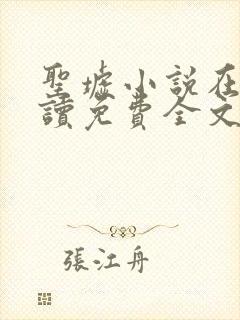 聖墟小説在
讀免費全文
張江舟